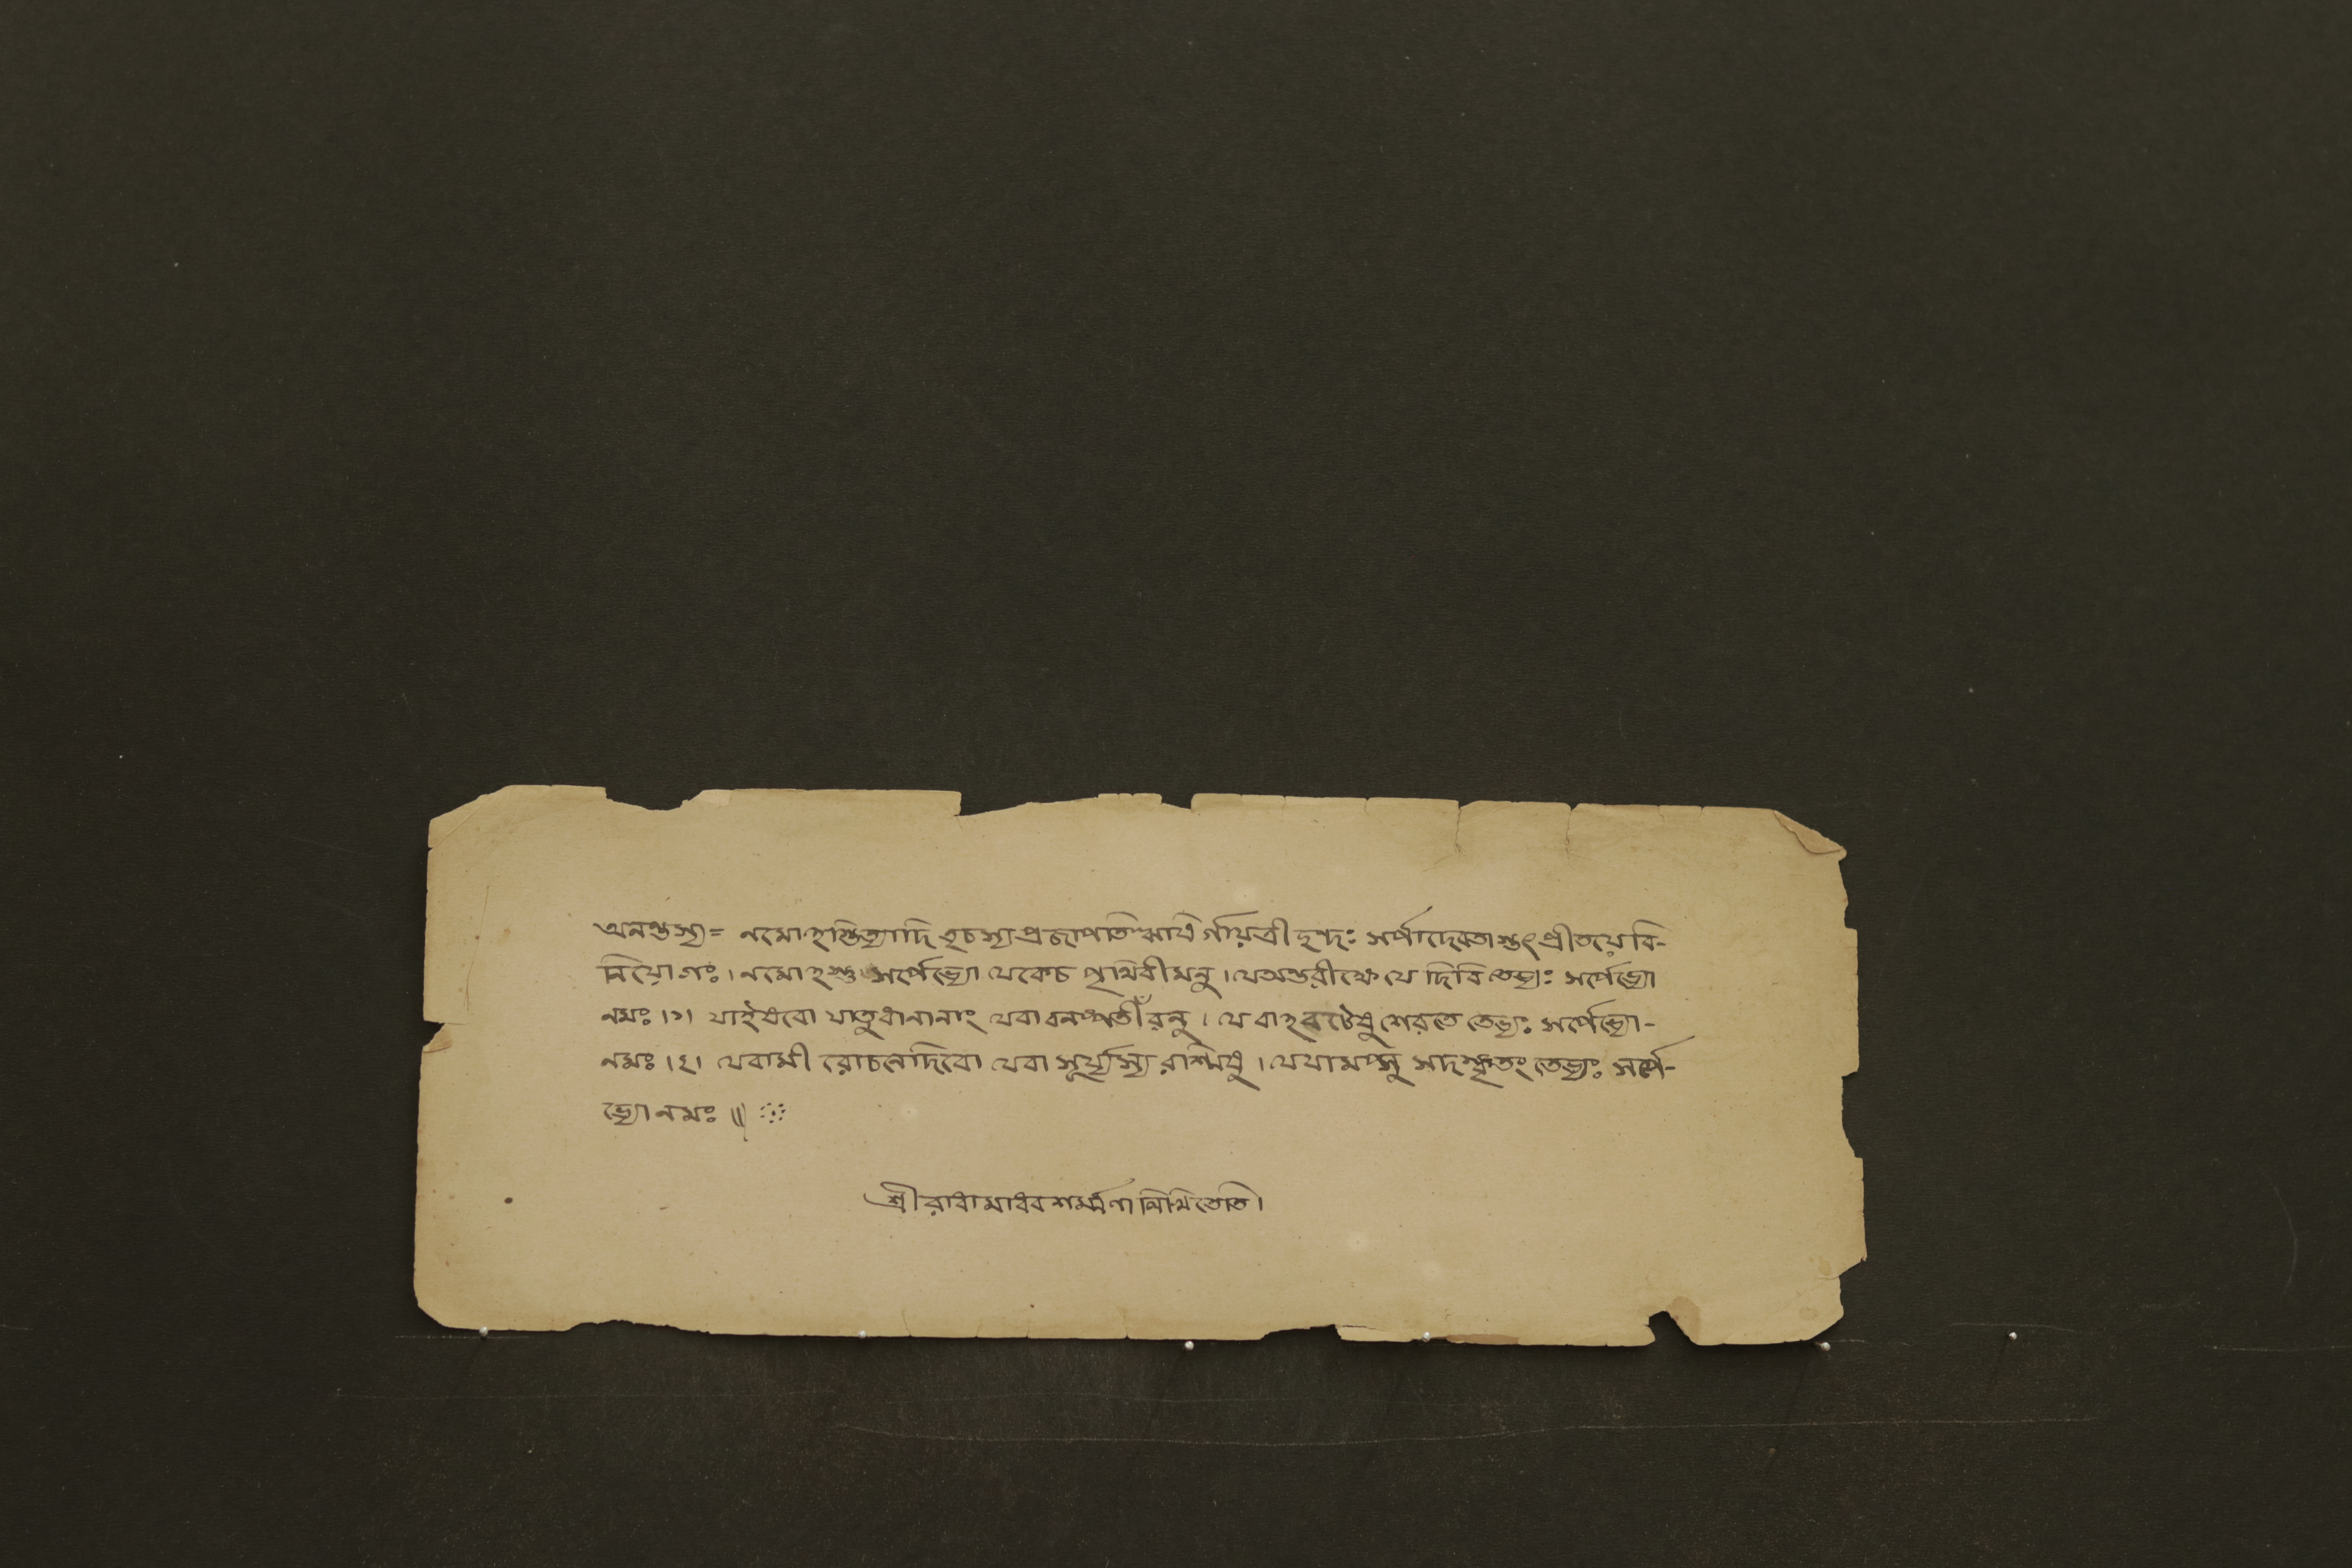 অনন্তস্য= নমোঽস্তিত্যাদি তৃচস্য প্রজাপতিঋষির্গায়ত্রী ছন্দঃ সর্পাদেবতাস্তৎপ্রীতয়ে বি-
নিয়োগঃ। নমোঽস্তু সর্পেভ্যো যেকেচ পৃথিবীমনু। যেঅন্তরীক্ষে যে দিবি তেভ্যঃ সর্পেভ্যো
নমঃ।১। যাইষবো যাতুধানানাং যেবা বনস্পতীঁরনু। যে বাঽবটেষু শেরতে তেভ্যঃ সর্পেভ্যো-
নমঃ।২। যেবামী রোচনেদিবো যেবা সূর্য্যস্য রশ্মিষু। যেষামপ্সু সদস্কৃতং তেভ্যঃ সর্পে-
ভ্যোনমঃ॥
শ্রীরাধামাধবশর্ম্মণা লিখিতেতি।